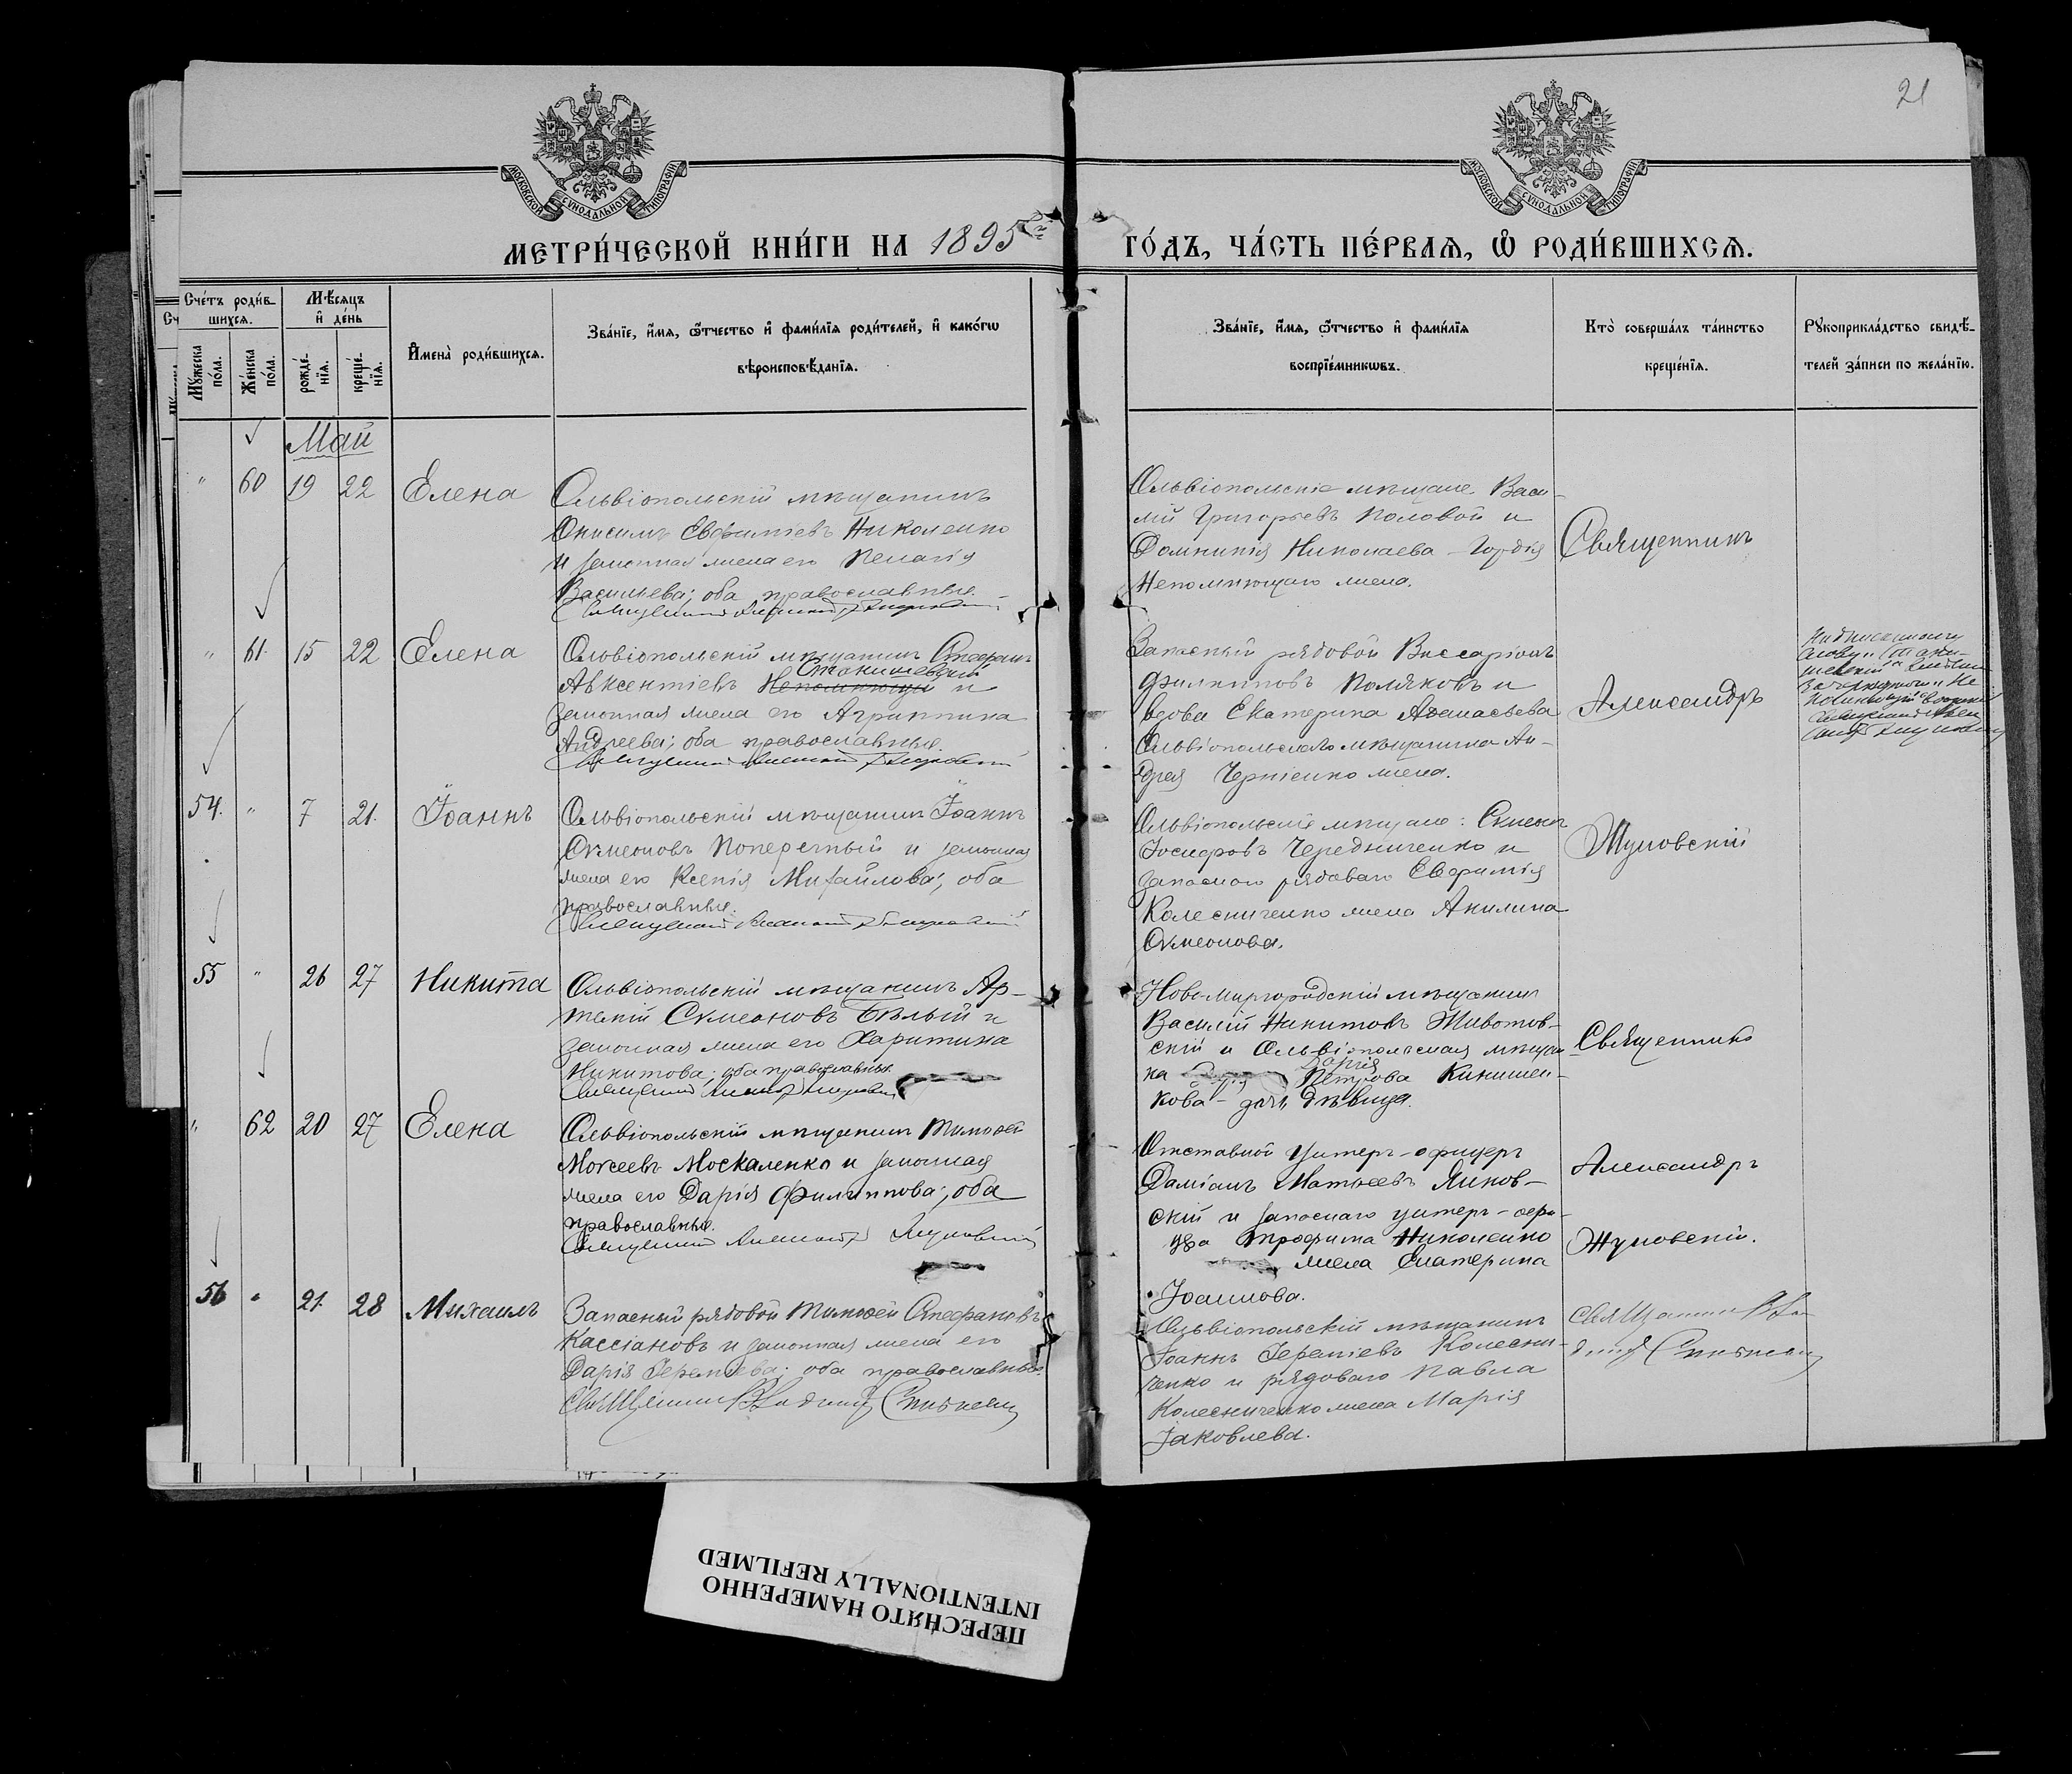 21
МОСКОВСКОЙ СУНОДАЛЬНОЙ ТИПОГРАФІИ
МОСКОВСКОЙ СУНОДАЛЬНОЙ ТИПОГРАФІИ
МЕТРИ́ЧЕСКОЙ КНИ́ГИ НА 1895
ГО́ДЪ, ЧА́СТЬ ПЕ́РВАѦ, Ѡ РОДИ́ВШИХСѦ.
Сче́тъ роди́в-
шихсѧ.
Мѣ́сѧцъ
и҆ де́нь
Мꙋ́жеска
по́ла.
Же́нска
по́ла.
рожде́-
нїѧ.
креще́-
нїѧ.
И҆мена̀ роди́вшихсѧ.
Зва́нїе, и҆́мѧ, ѻ҆́тчество и҆ фами́лїѧ роди́телей, и҆ како́гѡ
вѣроисповѣ́данїѧ.
Зва́нїе, и҆́мѧ, ѻ҆́тчество и҆ фами́лїѧ
воспрїе́мникѡвъ.
Кто̀ соверша́лъ та́инство
креще́нїѧ.
Рꙋкоприкла́дство свидѣ́-
телей за́писи по жела́нїю.
Май
" 60 19 22 Елена
Ольвіопольскій мѣщанинъ
Онисимъ Евфиміевъ Николенко
и законная жена его Пелагія
Васильева; оба православные.
Ольвіопольскіе мѣщане Васи-
лій Григорьевъ Половой и
Домникія Николаева - Гордія
Непомнющаго жена.
Священникъ
" 61 15 22 Елена
Ольвіопольскій мѣщанинъ Стефанъ
Станишевскій
Авксентіевъ Непомнющій и
законная жена его Агриппина
Андреева; оба православные.
Запасный рядовой Виссаріонъ
Филипповъ Поляковъ и
вдова Екатерина Афанасьева
Ольвіопольскаго мѣщанина Ан-
дрея Черніенко жена.
Александръ
54. " 7 21. Іоаннъ
Ольвіопольскій мѣщанинъ Іоаннъ
Сѵмеоновъ Поперечный и законная
жена его Ксенія Михайлова; оба
православные.
Ольвіопольскіе мѣщане: Сѵмеонъ
Іосифовъ Чередниченко и
запаснаго рядоваго Евфимія
Колесниченко жена Акилина
Сѵмеонова.
Жуковскій
55 " 26 27 Никита
Ольвіопольскій мѣщанинъ Ар-
темій Сѵмеоновъ Бѣлый и
законная жена его Харитина
Никитова; оба православные.
Ново-Миргородскій мѣщанинъ
Василій Никитовъ Животов-
скій и Ольвіопольская мѣщан
ка Дарія Петрова Кикишен-
кова - дѣвица.
Священникъ
" 62 20 27 Елена
Ольвіопольскій мѣщанинъ Тимофей
Моѵсеевъ Москаленко и законная
жена его Дарія Филиппова; оба
православные.
Отставной унтеръ-офицеръ
Даміанъ Матѳеевъ Янков-
скій и запаснаго унтеръ-офи-
цера Трофима Николенко
жена Екатерина
Іоаннова.
Александръ
Жуковскій.
56 " 21. 28 Михаилъ
Запасный рядовой Тимофей Стефановъ
Кассіановъ и законная жена его
Дарія Іереміева; оба православные.
Ольвіопольскій мѣщанинъ
Іоаннъ Іереміевъ Колесни-
ченко и рядоваго Павла
Колесниченко жена Марія
Іаковлева.
ПЕРЕСНЯТО НАМЕРЕННО
INTENTIONALLY REFILMED